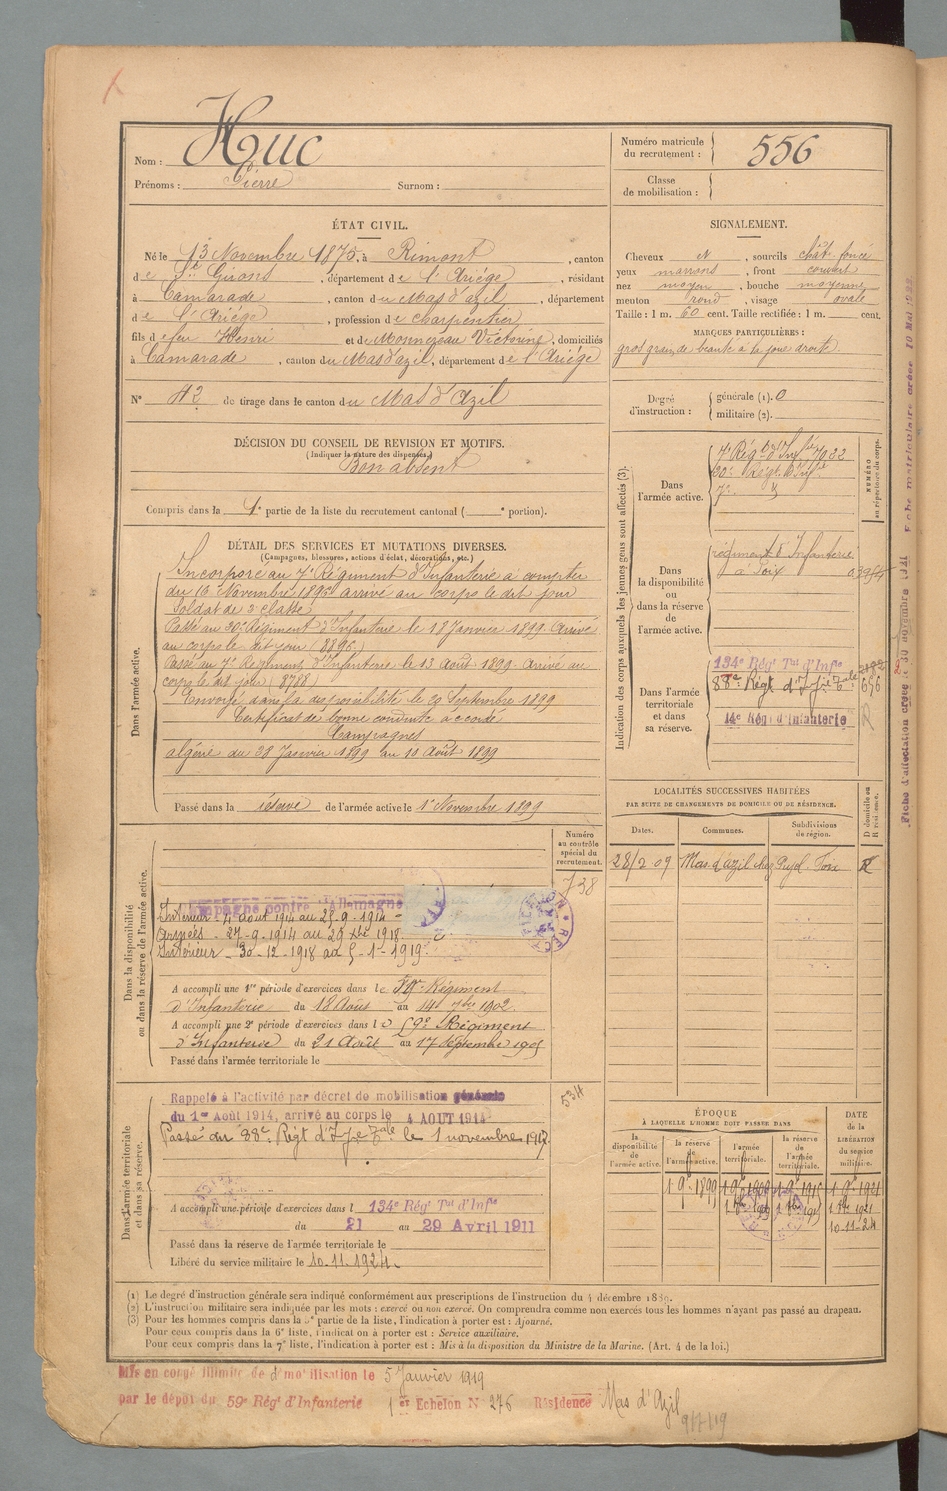 Nom : Huc
Prénoms : Pierre Surnom :
Numéro matricule du recrutement : 556
Classe de mobilisation :
ÉTAT CIVIL.
Né le 13 Novembre 1875, à Rimont, canton
de St Girons, département de l'Ariége, résidant
à Camarade, canton du Mas d'azil, département
de l'Ariége, profession de charpentier
fils de feu Henri et de Victorine, domiciliés
à Camarade, canton du Mas d'azil, département de l'Ariége
N° 42 de tirage dans le canton du Mas d'Azil
DÉCISION DU CONSEIL DE REVISION ET MOTIFS.
(Indiquer la nature des dispenses.)
Bon absent
Compris dans la 1e partie de la liste du recrutement cantonal ( e portion).
SIGNALEMENT.
Cheveux N, sourcils chât. foncé
yeux marrons, front couvert
nez moyen, bouche moyenne
menton rond, visage ovale
Taille : 1 m. 60 cent. Taille rectifiée : 1 m. cent.
MARQUES PARTICULIÈRES :
gros grain de beauté à la joue droite
Degré d'instruction : générale (1). 0
militaire (2).
DÉTAIL DES SERVICES ET MUTATIONS DIVERSES.
(Campagnes, blessures, actions d'éclat, décorations, etc.)
Dans l'armée active.
Incorporé au 7e Régiment d'Infanterie à compter
du 16 Novembre 1896 arrivé au corps le dit jour
Soldat de 2e classe
Passé au 30e Régiment d'Infanterie le 18 Janvier 1899. Arrivé
au corps le dit jour (8896)
Passé au 7e Régiment d'Infanterie le 13 Août 1899. Arrivé au
corps le dit jour (8788)
Envoyé dans la disponibilité le 20 Septembre 1899
Certificat de bonne conduite accordé
Campagnes
algérie du 28 Janvier 1899 au 10 Août 1899
Passé dans la réserve de l'armée active le 1er Novembre 1899
Indication des corps auxquels les jeunes gens sont affectés (3).
NUMÉRO au répertoire du corps.
Dans l'armée active.
7e Régt d'Infie 7022
30e Régt d'Infie
7e
Dans la disponibilité ou dans la réserve de l'armée active.
régiment d'Infanterie
à Foix
Dans l'armée territoriale et dans sa réserve.
134e Régt Tal d'Infie
88e Régt d'Ifie Tale 656
14e Régt d'Infanterie
R
LOCALITÉS SUCCESSIVES HABITÉES
PAR SUITE DE CHANGEMENTS DE DOMICILE OU DE RÉSIDENCE.
Dates. Communes. Subdivisions de région. D domicile ou R résidence.
28/2 09 Mas d'azil chez Pujol Foix R
Numéro au contrôle spécial du recrutement.
738
Dans la disponibilité ou dans la réserve de l'armée active.
Campagne contre l'Allemagne
Intérieur - 4 août 1914 au 25-9-1914 -
Armées - 27-9-1914 au 29 Xbre 1918
Intérieur - 30-12-1918 au 5-1-1919.
A accompli une 1re période d'exercices dans le Régiment
d'Infanterie du 18 Août au 14 7bre 1902.
A accompli une 2e période d'exercices dans le 59e Régiment
d'Infanterie du 21 Août au 17 Septembre 1905
Passé dans l'armée territoriale le
Dans l'armée territoriale et dans sa réserve.
Rappelé à l'activité par décret de mobilisation générale
du 1er Août 1914, arrivé au corps le 4 AOUT 1914
534
Passé au 88e Régt d'Ifie Tale le 1 novembre 1917.
A accompli une période d'exercices dans l 134e Régt Tal d'Infie
du 21 au 29 Avril 1911
Passé dans la réserve de l'armée territoriale le
Libéré du service militaire le 10.11.1924.
ÉPOQUE
À LAQUELLE L'HOMME DOIT PASSER DANS
la disponibilité de l'armée active. la réserve de l'armée active. l'armée territoriale. la réserve de l'armée territoriale.
DATE de la LIBÉRATION du service militaire.
1 9bre 1899 1 9bre 1909 1 9bre 1915 1 9bre 1921
10-11-24
(1) Le degré d'instruction générale sera indiqué conformément aux prescriptions de l'instruction du 4 décembre 1889.
(2) L'instruction militaire sera indiquée par les mots : exercé ou non exercé. On comprendra comme non exercés tous les hommes n'ayant pas passé au drapeau.
(3) Pour les hommes compris dans la 5e partie de la liste, l'indication à porter est : Ajourné.
Pour ceux compris dans la 6e liste, l'indication à porter est : Service auxiliaire.
Pour ceux compris dans la 7e liste, l'indication à porter est : Mis à la disposition du Ministre de la Marine. (Art. 4 de la loi.)
Mis en congé illimité de démobilisation le 5 Janvier 1919
par le dépôt du 59e Régt d'Infanterie 1er Echelon N° 276 Résidence Mas d'Azil
Fiche d'affectation créée le 30 novembre 1921 Fiche matriculaire créée 10 Mai 1922